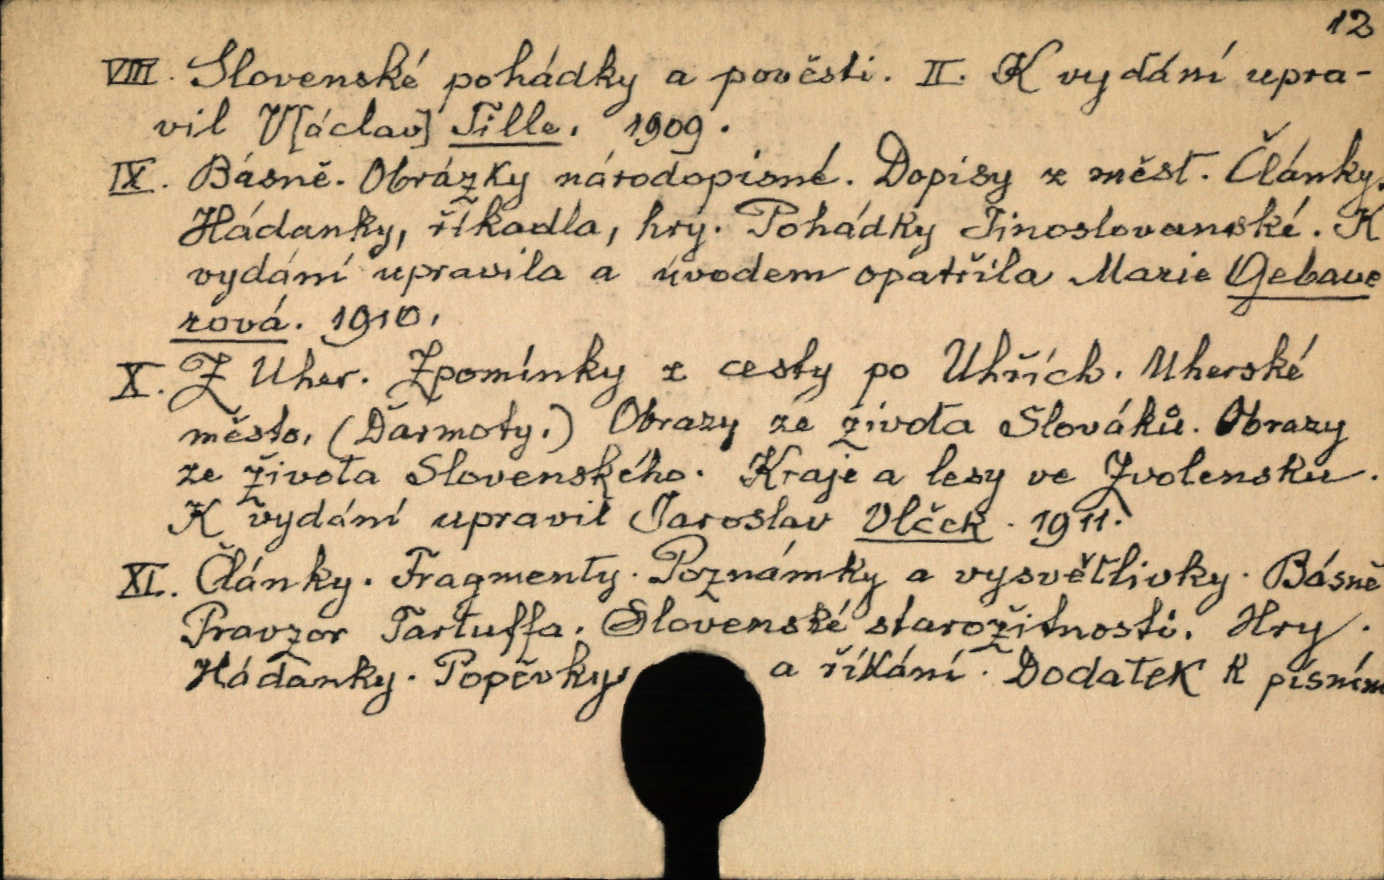 12
VIII. Slovenské pohádky a pověsti. II. K vydání upra-
vil V[áclav] Tille. 1909.
IX. Básně. Obrázky národopisné. Dopisy z měst. Články.
Hádanky, říkadla, hry. Pohádky Jinoslovanské. K
vydání upravila a úvodem opatřila Marie Gebaue
rová. 1910.
X. Z Uher. Zpomínky z cesty po Uhřích. Uherské
město. (Ďarmoty.) Obrazy ze života Slováků. Obrazy
ze života Slovenského. Kraje a lesy ve Zvolensku.
K vydání upravil Jaroslav Vlček. 1911.
XI. Články. Fragmenty. Poznámky a vysvětlivky. Básně
Pravzor Tartuffa. Slovenské starožitnosti. Hry.
Hádanky. Popěvky a říkání. Dodatek k písním